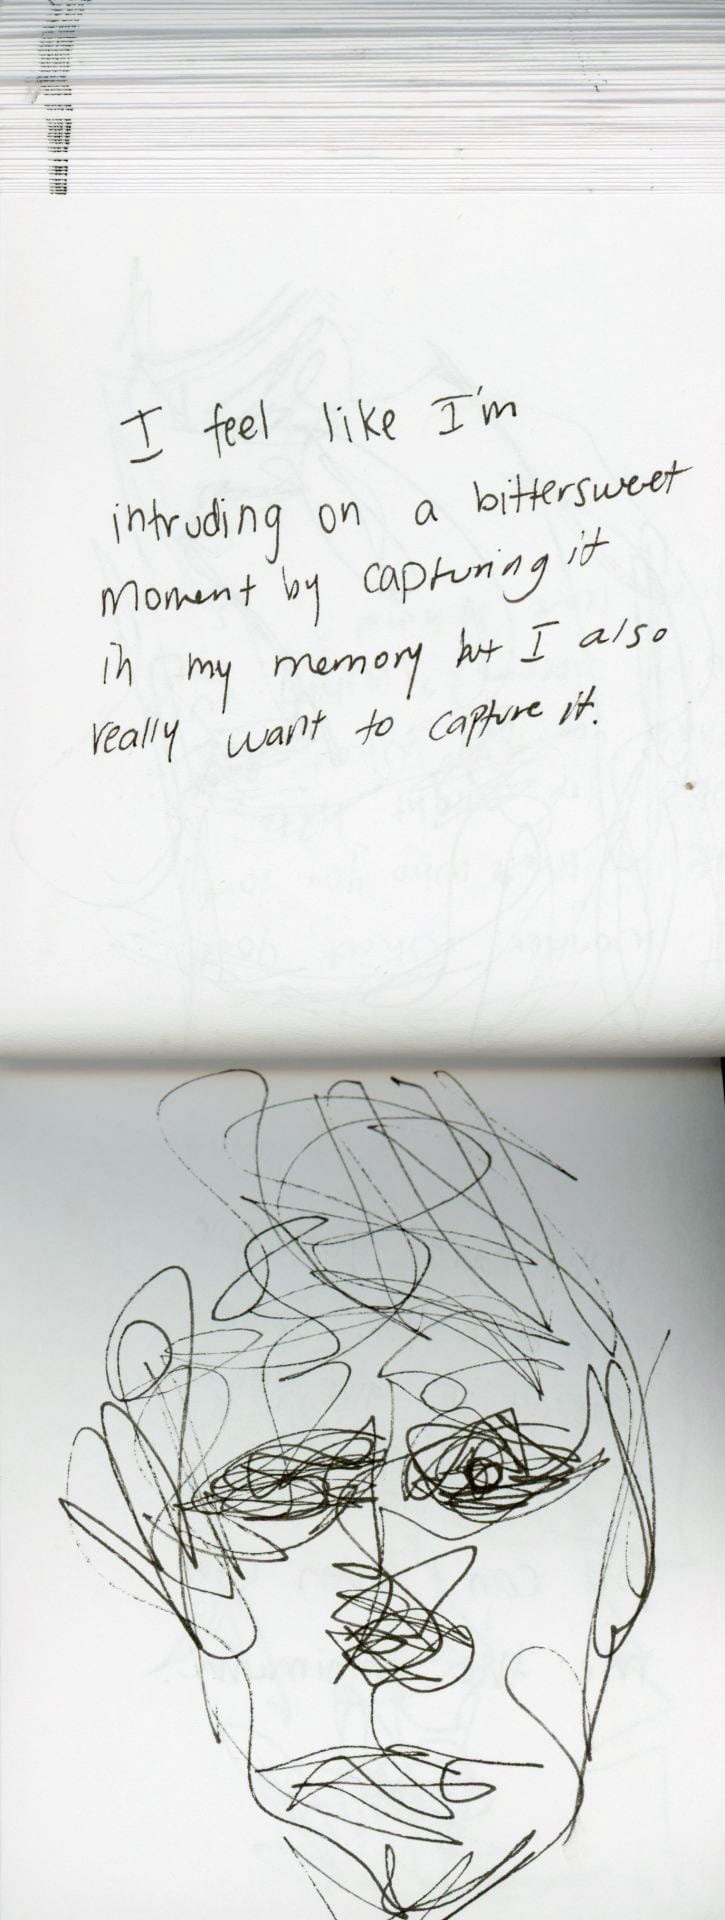 I feel like I'm
intruding on a bittersweet
moment by capturing it
in my memory but I also
really want to capture it.